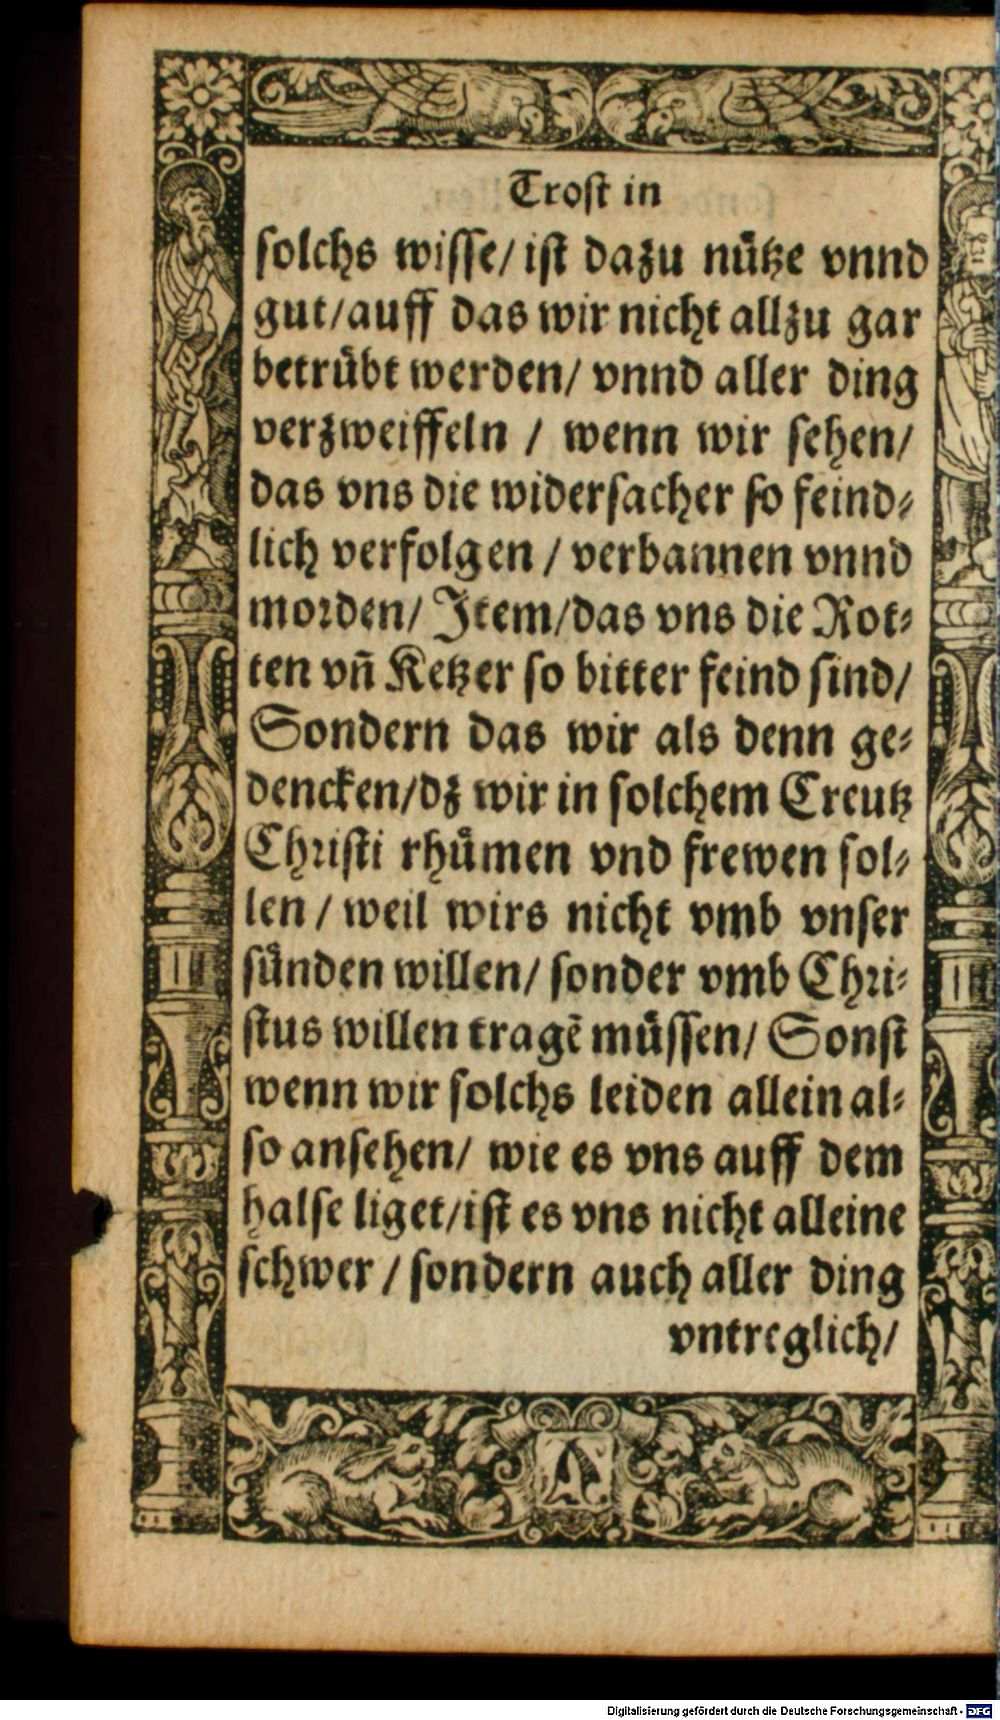 Trost in
solchs wisse/ ist dazu nuͤtze vnnd
gut/auff das wir nicht allzu gar
betruͤbt werden/ vnnd aller ding
verzweiffeln / wenn wir sehen/
das vns die widersacher so feind⸗
lich verfolgen / verbannen vnnd
morden/ Item/das vns die Rot⸗
ten vñ Ketzer so bitter feind sind/
Sondern das wir als denn ge⸗
dencken/dz wir in solchem Creutz
Christi rhuͤmen vnd frewen sol⸗
len / weil wirs nicht vmb vnser
suͤnden willen/ sonder vmb Chri⸗
stus willen tragẽ muͤssen/ Sonst
wenn wir solchs leiden allein al⸗
so ansehen/ wie es vns auff dem
halse liget/ist es vns nicht alleine
schwer / sondern auch aller ding
vntreglich/
Digitalisierung gefördert durch die Deutsche Forschungsgemeinschaft - DFG